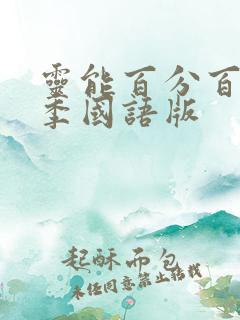 靈能百分百
季國語版
起酥面包
未经同意禁止转载